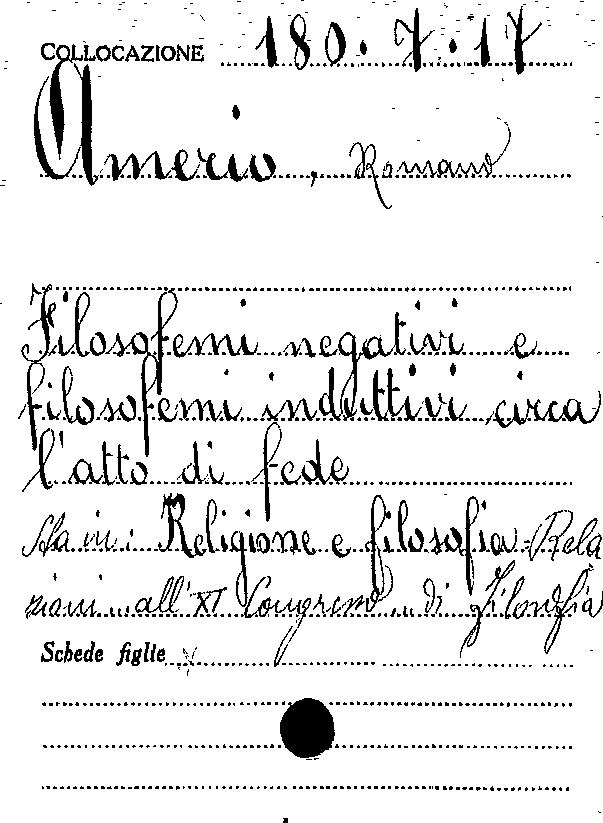 COLLOCAZIONE 180.7.17
Amerio, Romano
Filosofemi negativi e
filosofemi induttivi circa
l'atto di fede
Sta in: Religione e filosofia. Rela
zioni... all'XI Congresso... di Filosofia
Schede figlie